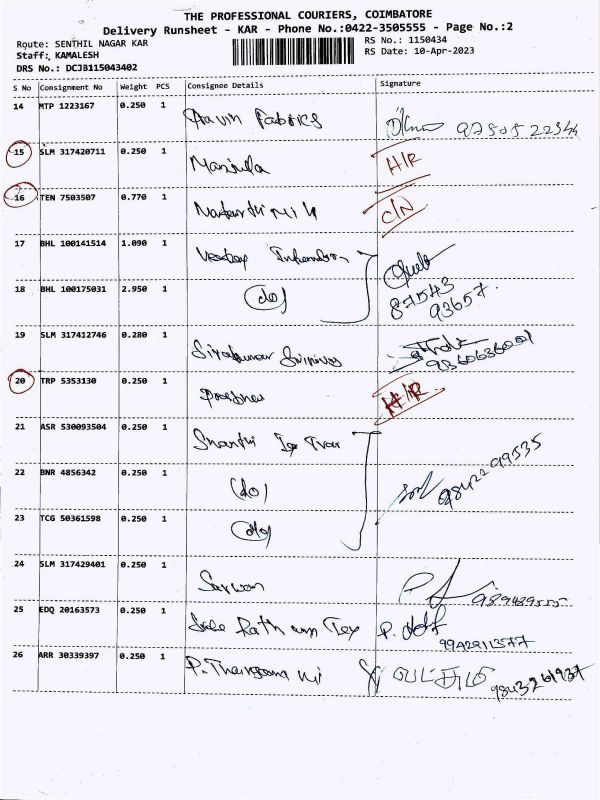 THE PROFESSIONAL COURIERS, COIMBATORE
Delivery Runsheet - KAR - Phone No.:0422-3505555 - Page No.:2
Route: SENTHIL NAGAR KAR
RS No.: 1150434
Staff: KAMALESH
RS Date: 10-Apr-2023
DRS No.: DCJB115043402
S No Consignment No Weight PCS Consignee Details Signature
14 MTP 1223167 0.250 1 Fabrics
15 SLM 317420711 0.250 1 Manjula H/R
16 TEN 7503507 0.770 1 C/N
17 BHL 100141514 1.090 1
18 BHL 100175031 2.950 1 (do) 87543 93657
19 SLM 317412746 0.280 1 Sivakumar 9360636001
20 TRP 5353130 0.250 1 H/R
21 ASR 530093504 0.250 1 Shanthi Tex
22 BNR 4856342 0.250 1 (do) 9842299535
23 TCG 50361598 0.250 1 (do)
24 SLM 317429401 0.250 1 Sarwan
25 EDQ 20163573 0.250 1 Tex 9942911577
26 ARR 30339397 0.250 1 P. 9843261937